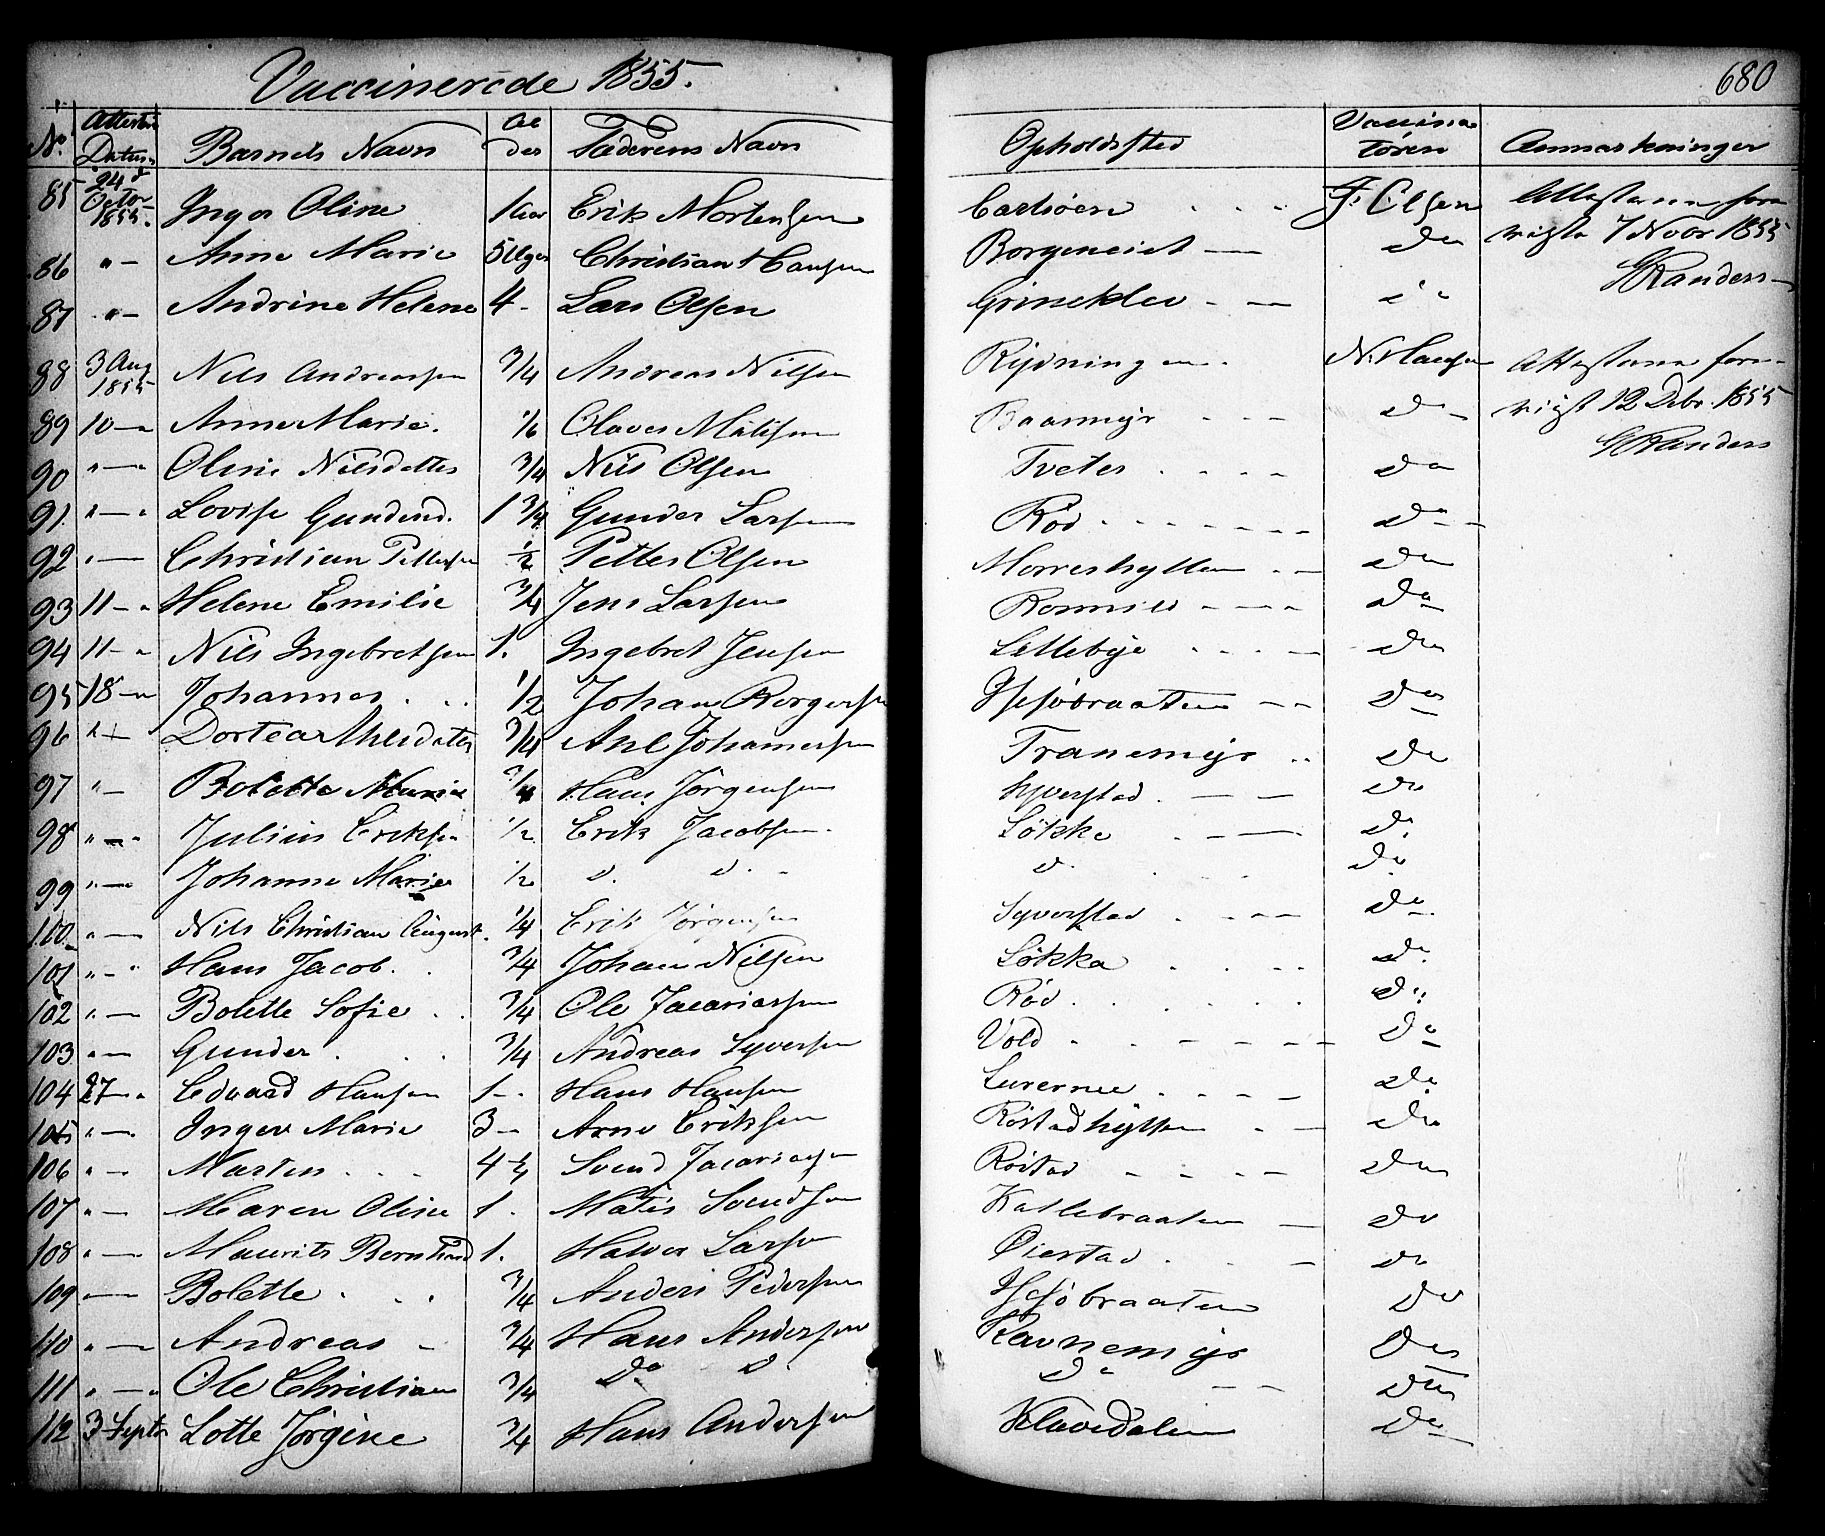 Vaccinerede 1855.
680
No. Attestens Datum Barnets Navn Alder Faderens Navn Opholdssted Vaccinatøren Anmærkninger
85 24de Octor 1855. Inger Oline 1 Aar Erik Mortensen F. Olsen
86 "- Anne Marie 5 Uger Christian Hansen Do
87 "- Andrine Helene 4 - Lars Olsen Grineklev - -
Attesterne fore
vigte 7 Novbr 1855
G Randers
88 3 Aug 1855 Nils Andreassen 3/4 Andreas Nilsen Rydningen. N. Hansen
89 10 - Anne Marie. 1/6 Olaves Matisen Baarmyr - - - Do
90 " - Oline Nilsdatter 3/4 Nils Olsen Tveter Do
Attesterne fore-
vigt 12 Debr. 1855
G Randers
91 " - Lovise Gundersd. 1 3/4 Gunder Larsen Rød Do
92 " - Christian Pettersen 1/2 Petter Olsen Do
93 11 - Helene Emilie 3/4 Jens Larsen Do
94 11 - Nils Ingebretsen 1. Ingebret Jensen Lillebye Do
95 18 - Johannes 1/2 Johan Borgersen Do
96 " - Dortea Ahlsdatter 3/4 Ahl Johannessen Tranemyr Do
97 " - Bolette Marie 3/4 Hans Jørgensen Syverstad Do
98 " - Julius Eriksen 1/2 Erik Jacobsen Løkke Do
99 " - Johanne Marie 1/2 d. d. d. Do
100 " - Nils Christian August 1/4 Erik Jørgensen Syverstad Do
101 " - Hans Jacob. 3/4 Johan Nilsen Løkka Do
102 " - Bolette Sofie 3/4 Ole Jacariassen Rød Do
103 " - Gunder 3/4 Andreas Syversen Vold Do
104 27 - Edvard Hansen 1 - Hans Hansen Do
105 " - Inger Marie 3 - Arne Eriksen Røstadhytten Do
106 " - Marten 4 1/2 Svend Jacariasen Røstad Do
107 " - Maren Oline 1. Matis Svendsen Katlebraaten Do
108 " - Maurits Bernhard 1. Halvor Larsen Øierstad Do
109 - Bolette 3/4 Anders Pedersen Do
110 " - Andreas - 3/4 Hans Andersen Ravnemyr Do
111 " - Ole Christian 3/4 Do d. Do Do
112 3 Septbr Lotte Jørgine 3/4 Hans Andersen Klavedalen Do